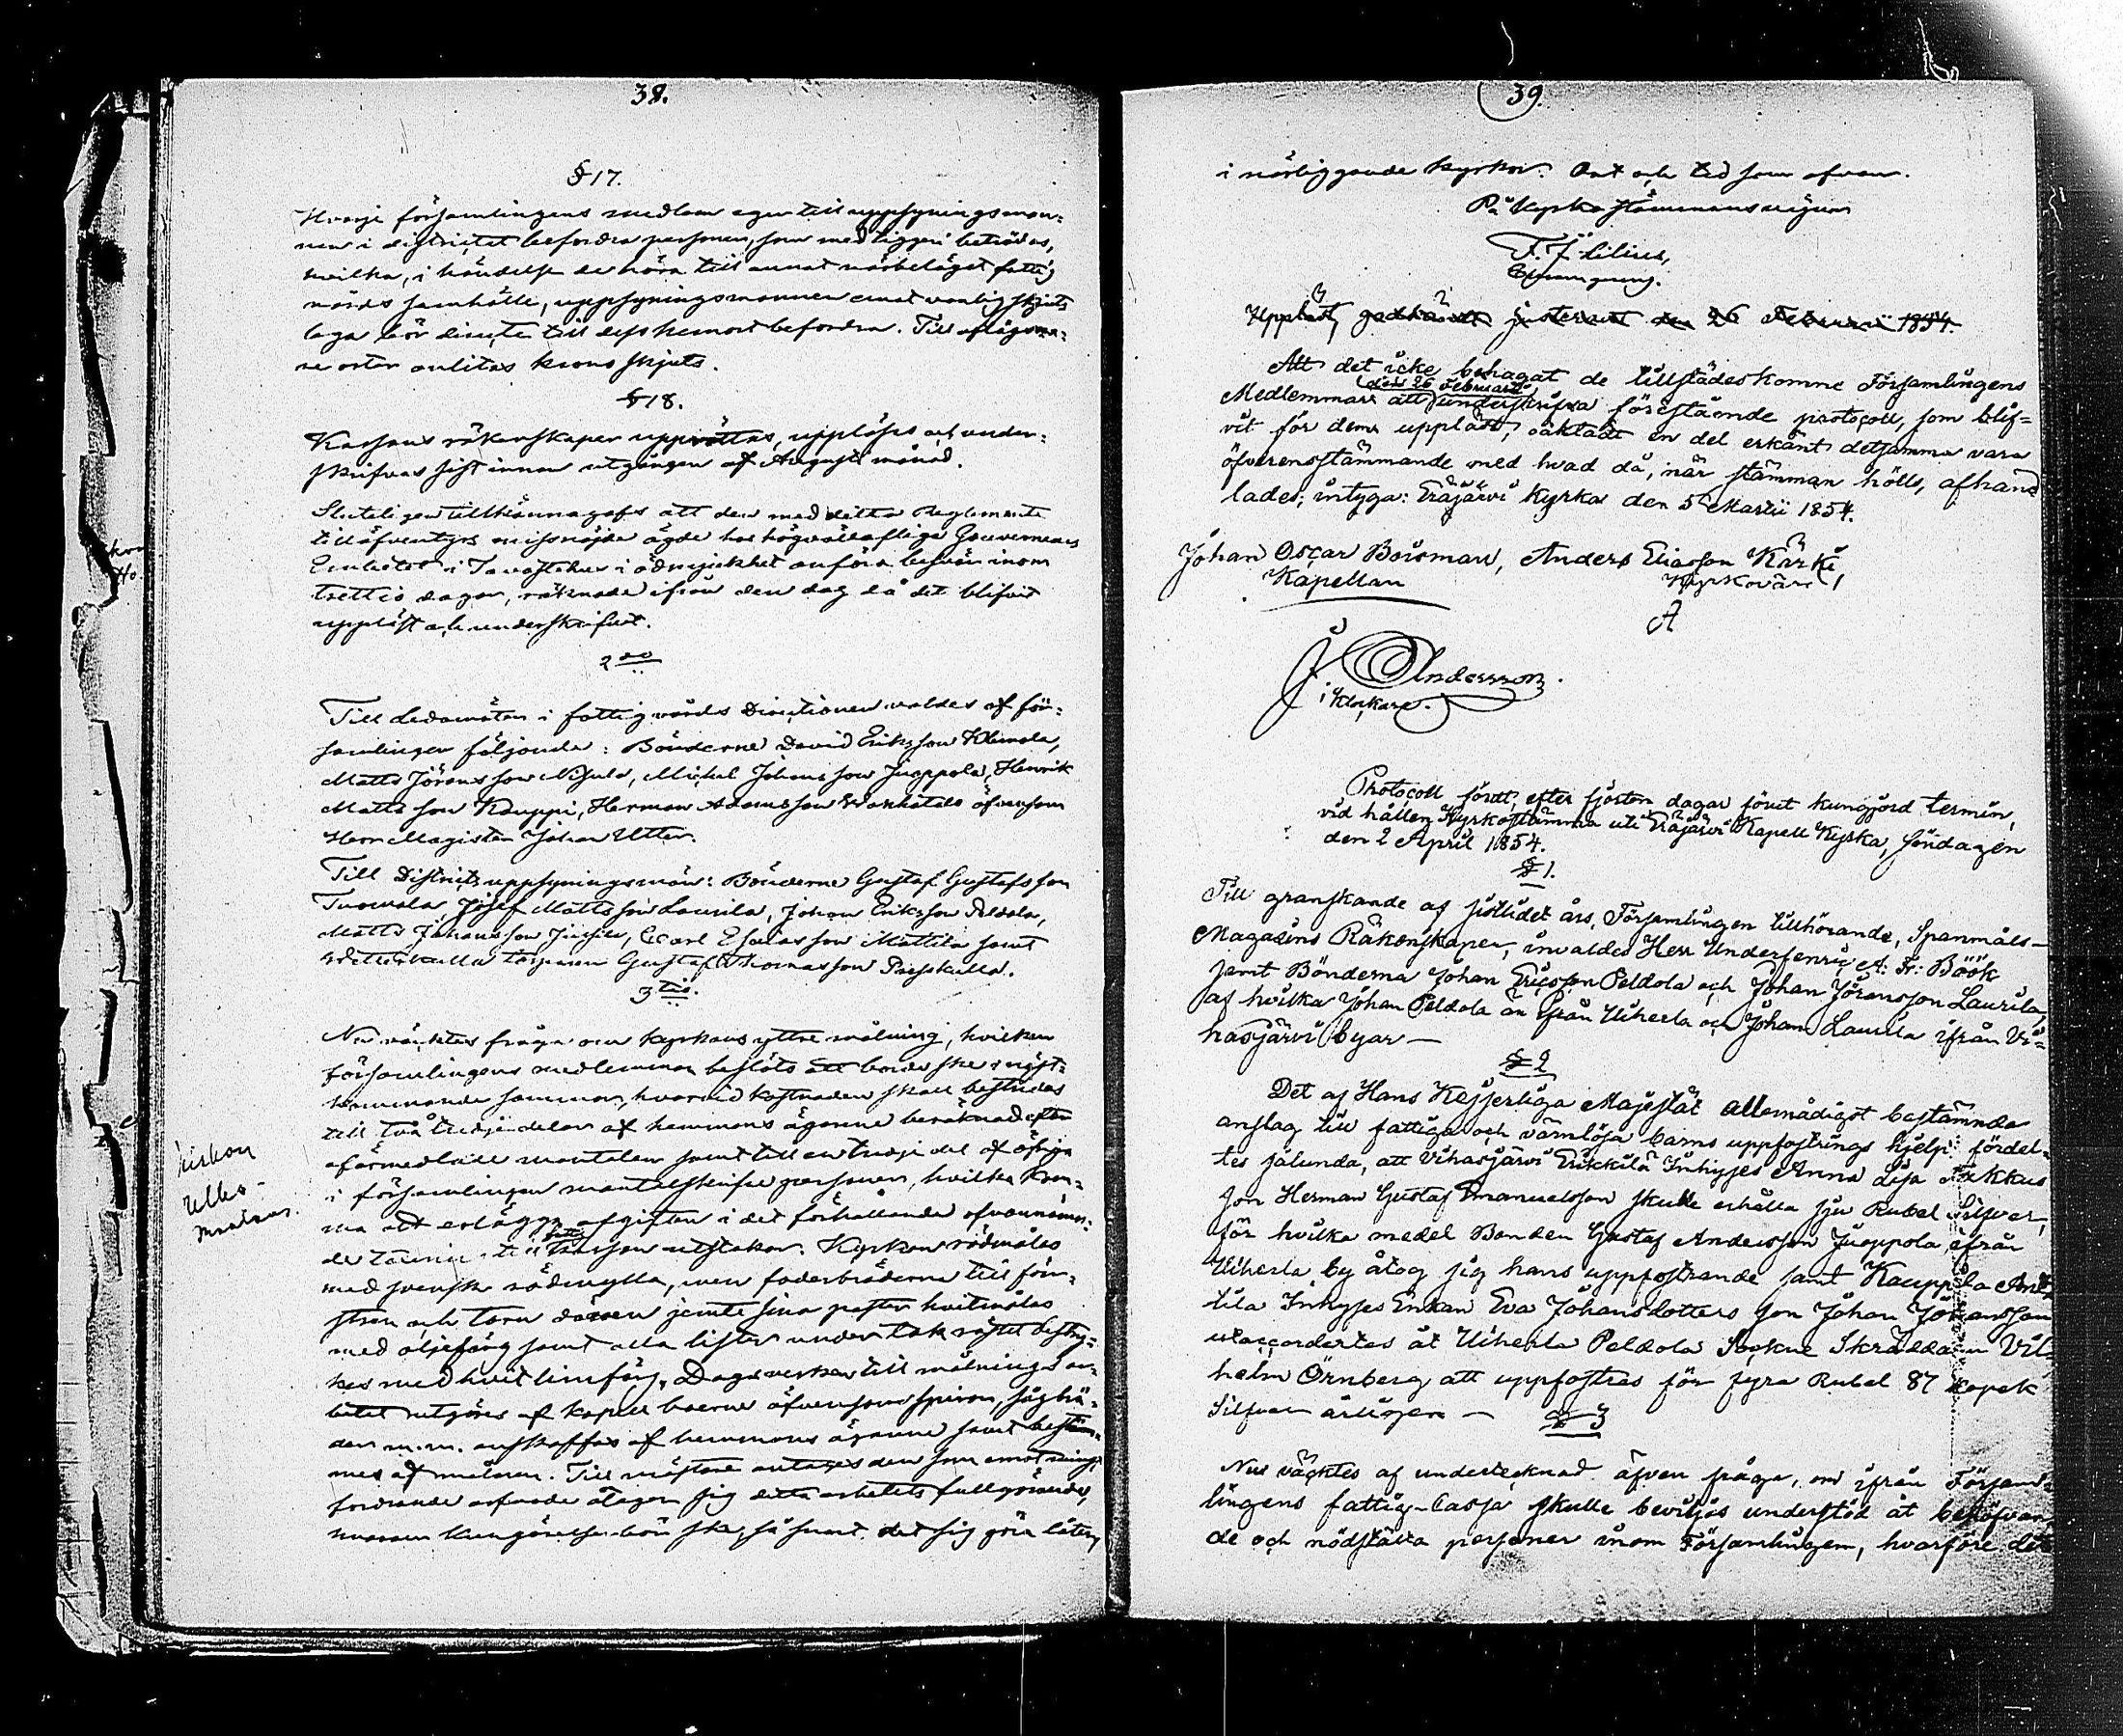 38.
§ 17.
Hvarje församlingens medlem eger till uppsyningsman-
nen i districtet befordra personer, som med tiggeri beträdas,
hvilka, i händelse de höra till annat närbeläget fattig
vårds samhälle, uppsyningsmannen emot vanlig skjuts
lega bör directe till dess hemort befordra. Till aflägsna-
re orter anlitas kronoskjuts.
§ 18.
Kassans räkenskaper upprättas, uppläses och under-
skrifvas sist innan utgången af Augusti månad.
Sluteligen tillkännagafs att den med detta Reglemente
till äfventyrs missnöjde ägde hos högvälloflige Gouvernements
Embetet i Tavastehus i ödmjukhet anföra besvär inom
trettio dagar, räknade ifrån den dag då det blifvit
uppläst och underskrifvet.
2do
Till Ledamöter i fattigvårds Directionen valdes af för-
samlingen följande: Bönderne David Eriksson
Matts Jöransson Nisula, Michel Johansson Juoppola, Henrik
Matts son Kauppi, Herman Adamsson äfvensom
Herr Magister Johan Utter.
Till Districts uppsyningsmän: Bönderne Gustaf Gustafsson
Tuomala, Josef Mattsson Laurila, Johan Eriksson Peldola,
Matts Johansson Carl Esaiasson Mattila samt
torparen Gustaf Thomasson
3tio.
Nu väcktes fråga om kyrkans yttre målning, hvilken
församlingens medlemmar beslöto borde ske näst-
kommande sommar, hvarvid kostnaden skall bestridas
till två tredje delar af hemmans ägarne beräknad efter
oförmedlade mantalen samt till en tredje del af öfriga
i församlingen mantalskrifne personer, hvilka kom-
ma att erlägga afgiften i det förhållande ofvannämn-
de till fattig kassan utstakar. Kyrkan rödmålas
med svensk rödmylla, men foderbräderne till fön-
stren och torn dörren jemte sina poster hvitmålas
med oljefärg samt alla lister under tak röstet bestry-
kas med hvit limfärg. Dagsverken till målnings ar-
betet utgöres af kapell boerne äfvensom spiror,
den m.m. anskaffas af hemmans ägarne samt bestäm-
mes af målaren. Till mästare antages den som emot minst
fordrande arfvode åtager sig detta arbetets fullgörande,
hvarom kungörelse bör ske, så snart det sig göra låter,
kirkon
ulko-
maalaus.
39.
i närliggande kyrkor. Ort och tid som ofvan.
På Kyrkostämmans vägnar
F. J. Lilius,
Uppläst, godkändt justerat den 26 Februarii 1854.
Att det icke behagat de tillstädeskomne Församlingens
den 26 Februarii
Medlemmar att underskrifva förestående protocoll, som blif-
vit för dem uppläst, oaktadt en del erkänt detsamma vara
öfverensstämmande med hvad då, när stämman hölls, afhand
lades; intyga: Eräjärvi Kyrka den 5 Martii 1854.
Johan Oscar Boisman, Anders Eliasson Kärki,
Kapellan
Kyrkovärd,
A
J Andersson.
klockare.
Protocoll fördt, efter fjorton dagar förut kungjord termin,
vid hållen Kyrkostämma uti Eräjärvi Kapell Kyrka, Söndagen
den 2 April 1854.
§ 1.
Till granskande af sistlidet års, Församlingen tillhörande, Spanmåls-
Magasins Räkenskaper, invaldes Herr Underfenric A: Fr: Böök
samt Bönderna Johan Ericsson Peldola och Johan Jöransson Laurila,
af hvilka Johan Peldola är från Uiherla och Johan Laurila ifrån Vi-
hasjärvi byar —
§ 2
Det af Hans Kejserliga Majestät allernådigst bestämnda
anslag till fattiga och värnlösa barns uppfostrings hjelp fördel-
tes sålunda, att Vihasjärvi Erikkilä Inhyses Anna Lisa Takkus
son Herman Gustaf Emanuelsson skulle erhålla sju Rubel Silfver,
för hvilka medel Bonden Gustaf Andersson Juoppola ifrån
Uiherla by åtog sig hans uppfostrande samt Kauppila Ant-
tila Inhyses Enkan Eva Johansdotters son Johan Johansson
utaccordertes åt Uiherla Peldola Sockne Skräddaren Vil-
helm Örnberg att uppfostras för fyra Rubel 87 kopek
Silfver årligen —
§ 3
Nu väcktes af undertecknad äfven fråga, om ifrån Försam-
lingens fattig-Cassa skulle beviljas understöd åt behöfvan-
de och nödställda personer inom Församlingen, hvarföre det